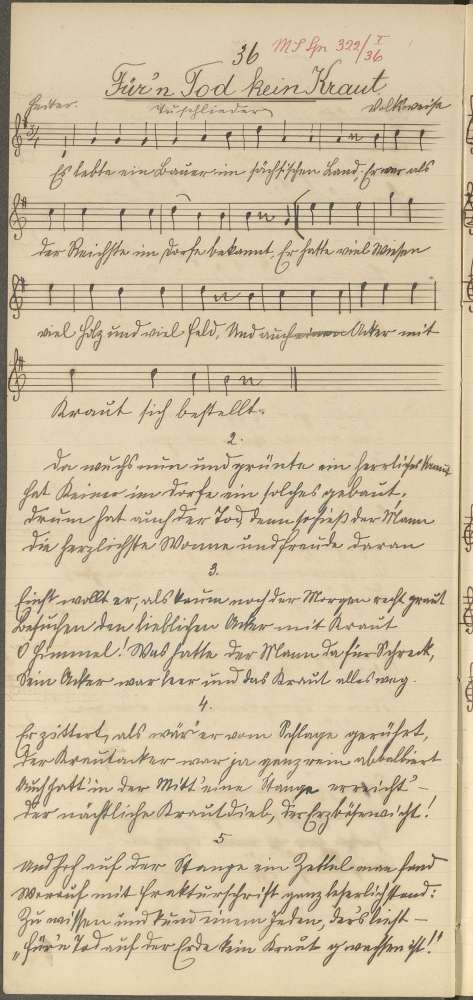 36
MS Lpn 322/I
/36
Für'n Tod kein Kraut
Heiter.
Tuschlieder
Volksweise
3/4
Es lebte ein Bauer im sächsischen Land. Er war als
der Reichste im Dorfe bekannt. Er hatte viel Wiesen
viel Holz und viel Feld, Und auch Acker mit
Kraut sich bestellt.
2.
Da wuchs nun und grünte ein herrliches Kraut
hat Keiner im Dorfe ein solches gebaut,
Drum hat auch der Tod, denn so hieß der Mann
Die herzlichste Wonne und Freude daran
3.
wollt er, als kaum noch der Morgen recht graut
Besuchen den lieblichen Acker mit Kraut
O Himmel! Was hatte der Mann da für Schreck,
Sein Acker war leer und das Kraut alles weg.
4.
Er zittert, als wär' er vom Schlage gerührt,
Der Krautacker war ja ganz rein abbalbiert
Auch hatt' in der Mitt' eine Stange erreicht -
der nächtliche Krautdieb, der Erzbösewicht!
5
Und hoch auf der Stange ein Zettel man fand
Worauf mit Frakturschrift ganz leserlich stand:
Zu wissen und kund einem Jeden, der's liest -
„Für'n Tod auf der Erde kein Kraut g'wachsen ist!"